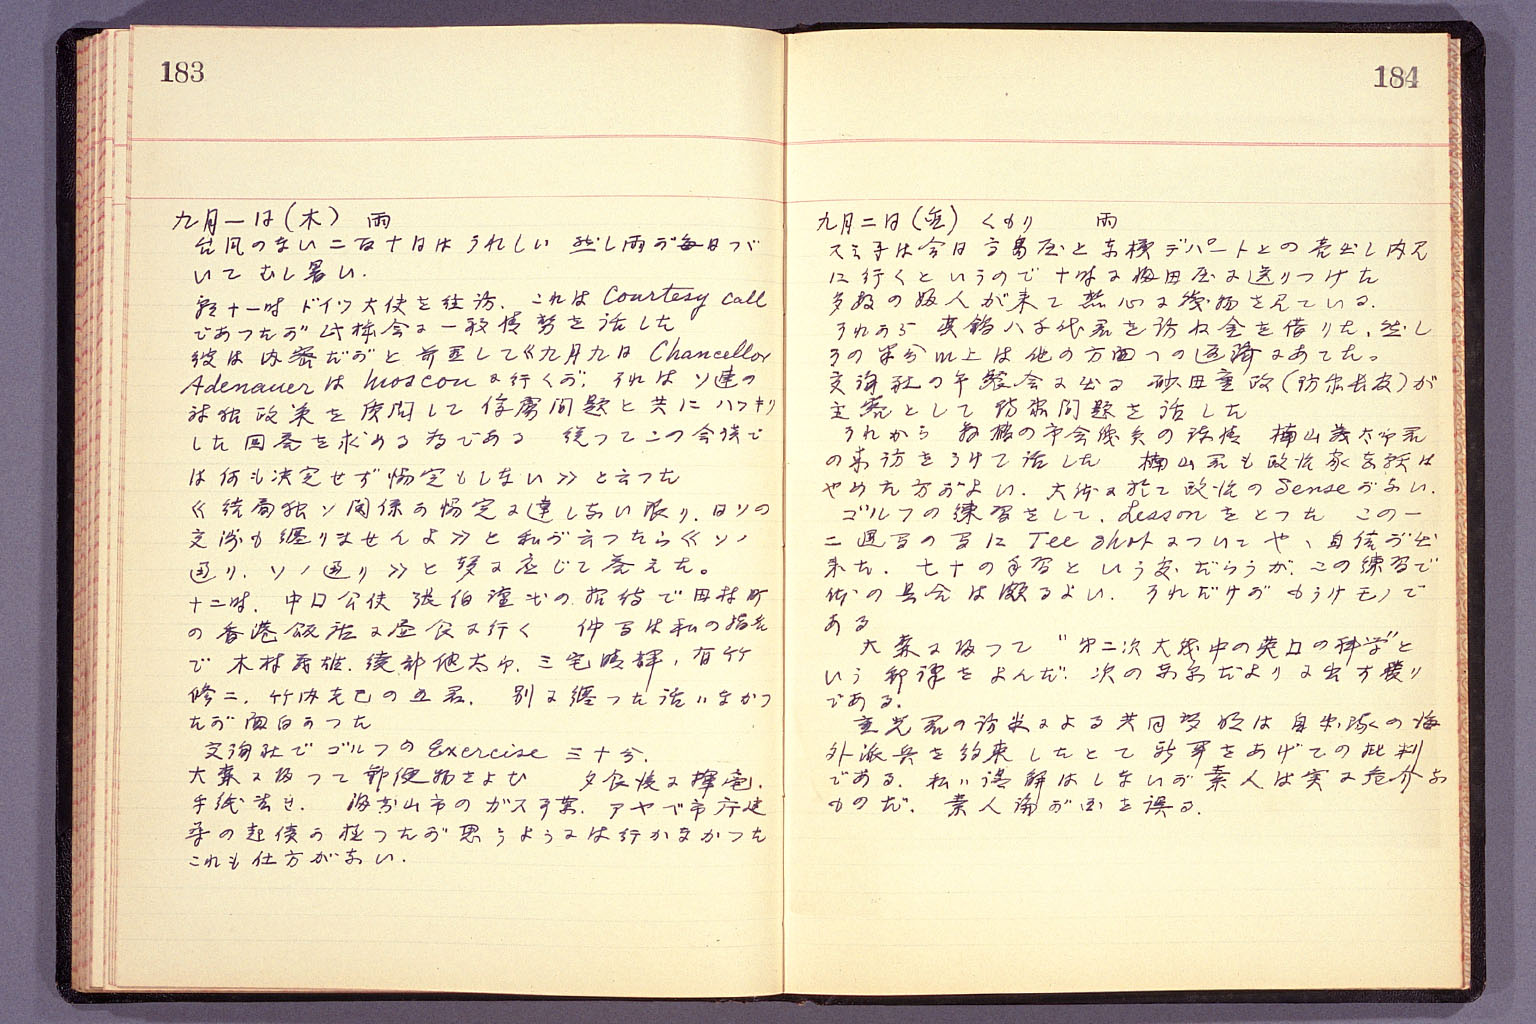 183
九月一日(木) 雨
台風のない二百十日はうれしい 然し雨が毎日つゞ
いてむし暑い.
前十一時ドイツ大使を往訪. これは Courtesy call
であつたが 此機会に一般情勢を話した
彼は内密だがと前置して《九月九日 Chancellor
Adenauer は Moscou に行くが. それはソ連の
対独政策を質問して俘虜問題と共にハツキリ
した回答を求める為である 従つてこの会談で
は何も決定せず協定もしない》と云つた
《結局独ソ関係の協定に達しない限り. 日ソの
交渉も纏りませんよ》と私が云つたら《ソノ
通り. ソノ通り》と 応じて答えた。
十二時. 中日公使 張伯謹 の招待で田村町
の香港飯店に昼食に行く 仲 は私の指名
で 木村 . 綾部健太郎. 三宅晴輝, 有竹
修二. 竹内 の五君. 別に纏つた話はなかつ
たが面白かつた
交詢社でゴルフの Exercise 三十分.
大森に帰つて郵便物をよむ 夕食後に揮毫.
手紙書き. 津山市のガス事業. アヤベ市庁建
 の起債の  つたが思うようには行かなかつた
これも仕方がない.
184
九月二日(金) くもり 雨
スミ子は今日高島屋と東横デパートとの売出し内見
に行くというので十時に梅田屋に送りつけた
多数の婦人が来て熱心に 物を見ている.
それから真鍋八千代君を訪ね金を借りた. 然し
その半分以上は他の方面への返済にあてた。
交詢社の午餐会に出る 砂田重政(防衛長官)が
主賓として防衛問題を話した
それから の市会 の陳情 楠山義太郎君
の来訪をうけて話した 楠山君も政治家 は
やめた方がよい. 大体に於て政治の Sense がない.
ゴルフの練習をして. Lesson をとつた この一
二週 の に Tee Shot についてやゝ自信が出
来た. 七十の手習という だらうが. この練習で
体の具合は頗るよい. それだけがもうけモノで
ある
大森に帰つて "第二次大戦中の英国の科学"と
いう 訳をよんだ. 次の だよりに出す積り
である.
重光君の訪米による共同声明は自衛隊の海
外派兵を約束したとて新聞をあげての批判
である. 私は誤解はしないが素人は実に危介な
ものだ. 素人論が国を誤る.